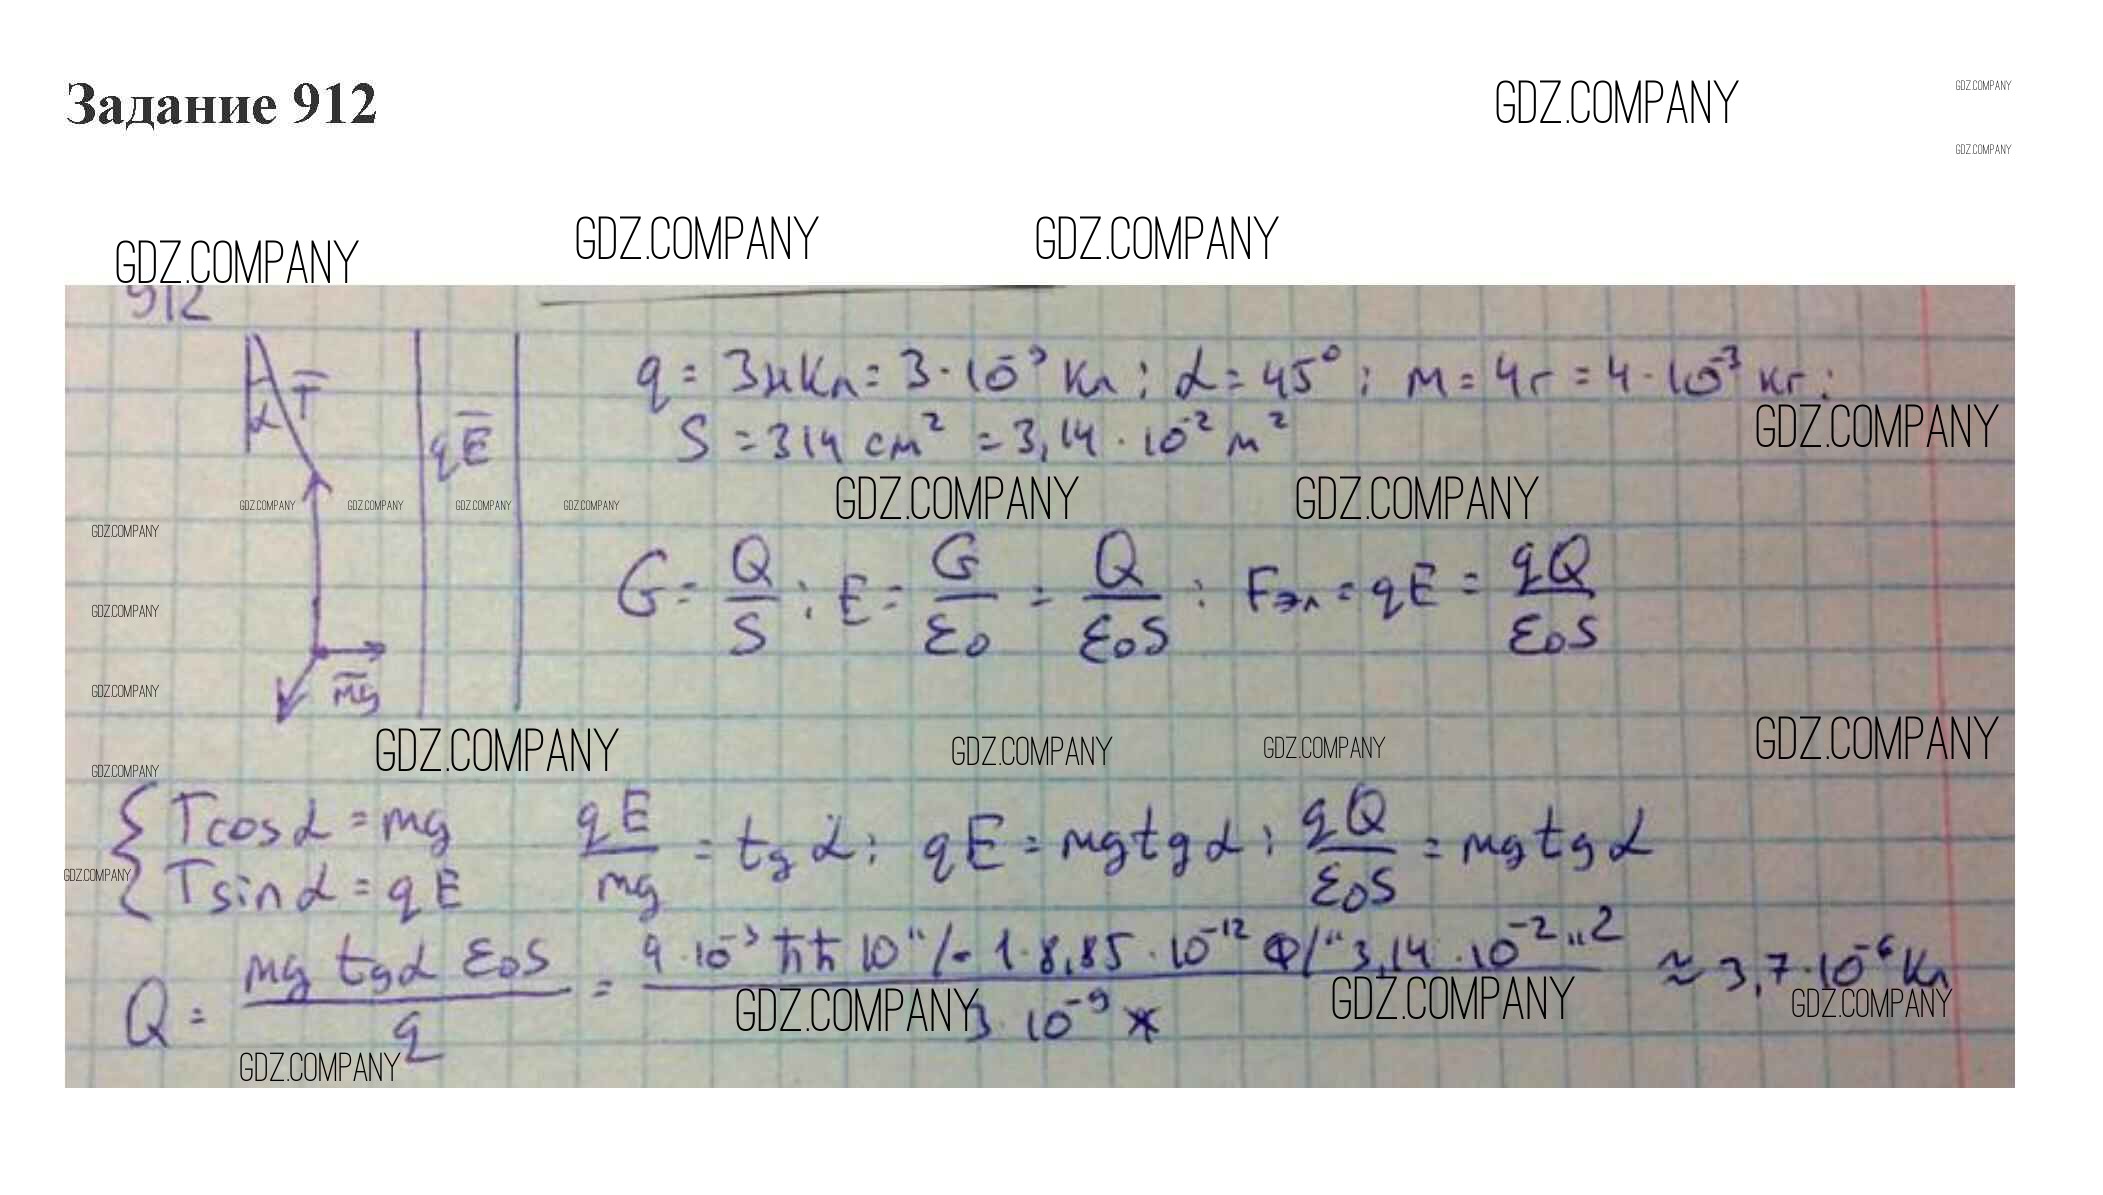 Задание 912
GDZ.COMPANY
GDZ.COMPANY
GDZ.COMPANY
GDZ.COMPANY GDZ.COMPANY GDZ.COMPANY
912
α T qE
q = 3нКл = 3·10⁻⁹ Кл; α = 45°; м = 4г = 4·10⁻³ кг;
GDZ.COMPANY
S = 314 см² = 3,14·10⁻² м²
GDZ.COMPANY GDZ.COMPANY GDZ.COMPANY GDZ.COMPANY GDZ.COMPANY GDZ.COMPANY
GDZ.COMPANY
G = Q/S; E = G/ε₀ = Q/ε₀S; Fэл = qE = qQ/ε₀S
GDZ.COMPANY
mg
GDZ.COMPANY
GDZ.COMPANY GDZ.COMPANY GDZ.COMPANY GDZ.COMPANY
GDZ.COMPANY
{ Tcosα = mg
Tsinα = qE
qE/mg = tgα; qE = mgtgα; qQ/ε₀S = mgtgα
GDZ.COMPANY
Q = mg tgα ε₀S / q = 4·10⁻³ 10 1·8,85·10⁻¹² Ф/ 3,14·10⁻² 2 / 3 10⁻⁹ ≈ 3,7·10⁻⁶ Кл
GDZ.COMPANY GDZ.COMPANY GDZ.COMPANY
GDZ.COMPANY